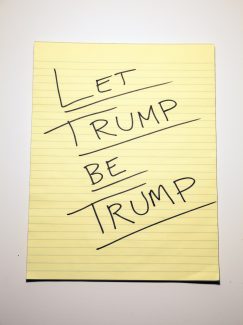 LET
TRUMP
BE
TRUMP